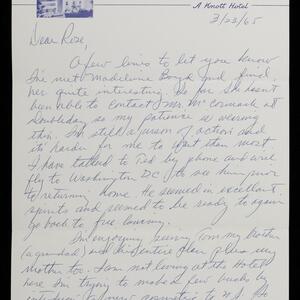 A Knott Hotel
3/23/65
Dear Rose,
A few lines to let you know
I've met Madeleine Boyd and find
her quite interesting. So far she hasn't
been able to contact Mr. McCormack at
Doubleday so my patience is wearing
thin. I'm still a person of action and
it's harder for me to wait than most.
I have talked to Ted by phone and will
fly to Washington DC to see him prior
to returning home. He seemed in excellent
spirits and seemed to be ready to again
go back to
I'm enjoying seeing Tom my brother
(a grandad) and his entire clan plus my
mother too. I am not living at the Hotel
here I'm trying to make a few bucks by